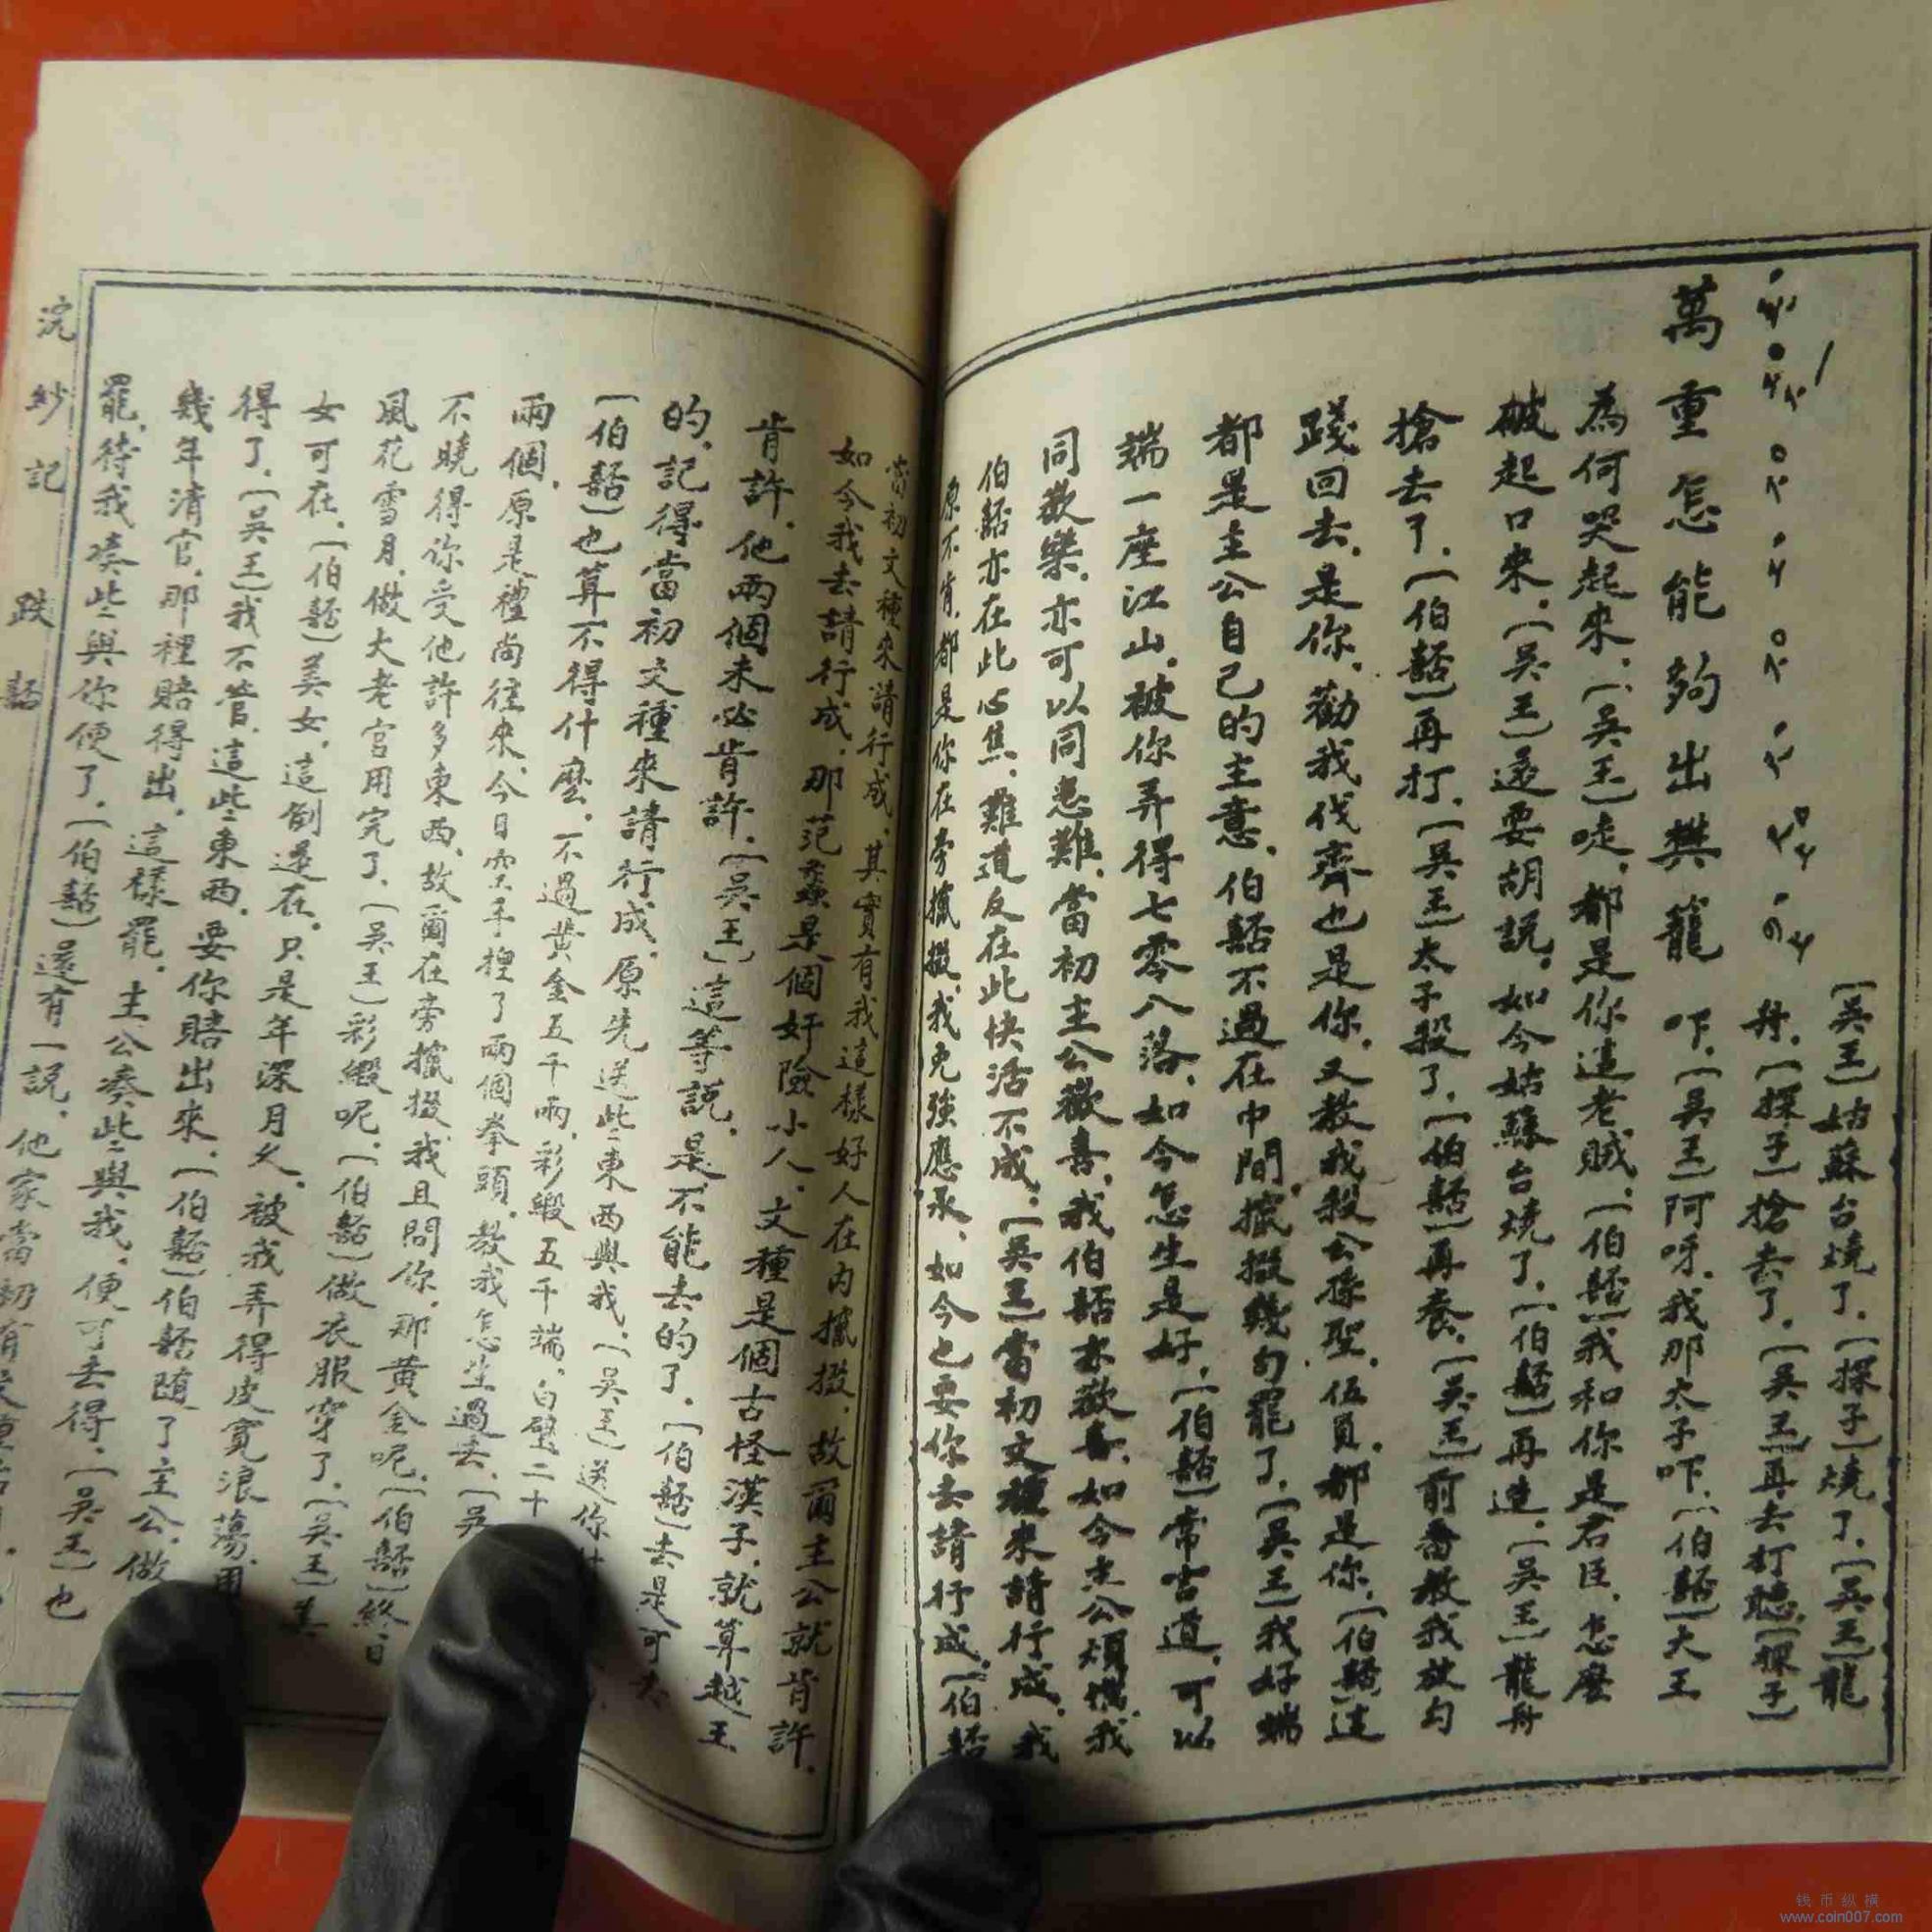 〔吳王〕姑蘇台燒了、〔探子〕燒了、〔吳王〕龍
舟、〔探子〕搶去了、〔吳王〕再去打聽、〔探子〕
萬重怎能夠出樊籠 吓、〔吳王〕阿呀、我那太子吓、〔伯嚭〕大王
為何哭起來、〔吳王〕唗、都是你這老賊、〔伯嚭〕我和你是君臣、怎麼
破起口來、〔吳王〕還要胡說、如今姑蘇台燒了、〔伯嚭〕再造、〔吳王〕龍舟
搶去了、〔伯嚭〕再打、〔吳王〕太子殺了、〔伯嚭〕再養、〔吳王〕前番教我放勾
踐回去、是你、勸我伐齊也是你、又教我殺公孫聖、伍員、都是你、〔伯嚭〕這
都是主公自己的主意、伯嚭不過在中間攛掇幾句罷了、〔吳王〕我好端
端一座江山、被你弄得七零八落、如今怎生是好、〔伯嚭〕常言道、可以
同歡樂、亦可以同患難、當初主公歡喜、我伯嚭亦歡喜、如今主公煩惱、我
伯嚭亦在此心焦、難道反在此快活不成、〔吳王〕當初文種來請行成、我
原不肯、都是你在旁攛掇、我免強應承、如今也要你去請行成、〔伯嚭〕
當初文種來請行成、其實有我這樣好人在內攛掇、故爾主公就肯許、
如今我去請行成、那范蠡是個奸險小人、文種是個古怪漢子、就算越王
肯許、他兩個未必肯許、〔吳王〕這等說、是不能去的了、〔伯嚭〕去是可去
的、記得當初文種來請行成、原先送些東西與我、〔吳王〕送你
〔伯嚭〕也算不得什麼、不過黃金五千兩、彩緞五千端、白璧二十
兩個、原是禮尚往來、今日空手捏了兩個拳頭、教我怎生過去、〔吳
不曉得你受他許多東西、故爾在旁攛掇、我且問你、那黃金呢、〔伯嚭〕終日
風花雪月、做大老官用完了、〔吳王〕彩緞呢、〔伯嚭〕做衣服穿了、〔吳王〕美
女可在、〔伯嚭〕美女、這倒還在、只是年深月久、被我弄得皮寬浪蕩、用
得了、〔吳王〕我不管、這些東西、要你賠出來、〔伯嚭〕伯嚭隨了主公、做
幾年清官、那裡賠得出、這樣罷、主公湊些與我、便可去得、〔吳王〕也
罷、待我湊些與你便了、〔伯嚭〕還有一說、他家當初有
浣紗記 跌嚭
钱币纵横
www.coin007.com